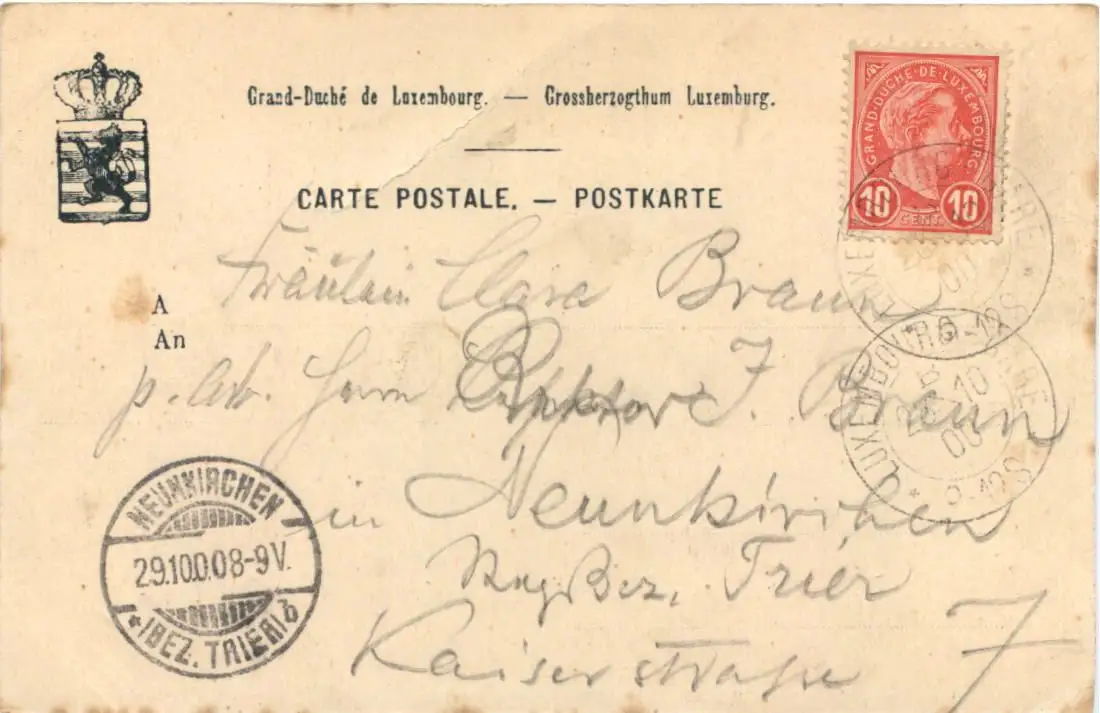 Grand-Duché de Luxembourg. — Grossherzogthum Luxemburg.
CARTE POSTALE. — POSTKARTE
GRAND-DUCHÉ-DE-LUXEMBOURG
10 CENT. 10
A
An
Fräulein Clara Braun
p. Ad. Herrn J. Braun
in Neunkirchen
Reg. Bez. Trier
Kaiserstraße 7
NEUNKIRCHEN
29.10.00.8-9V.
* (BEZ. TRIER) b
LUXEMBOURG-GARE
10
00
LUXEMBOURG-GARE
10
00